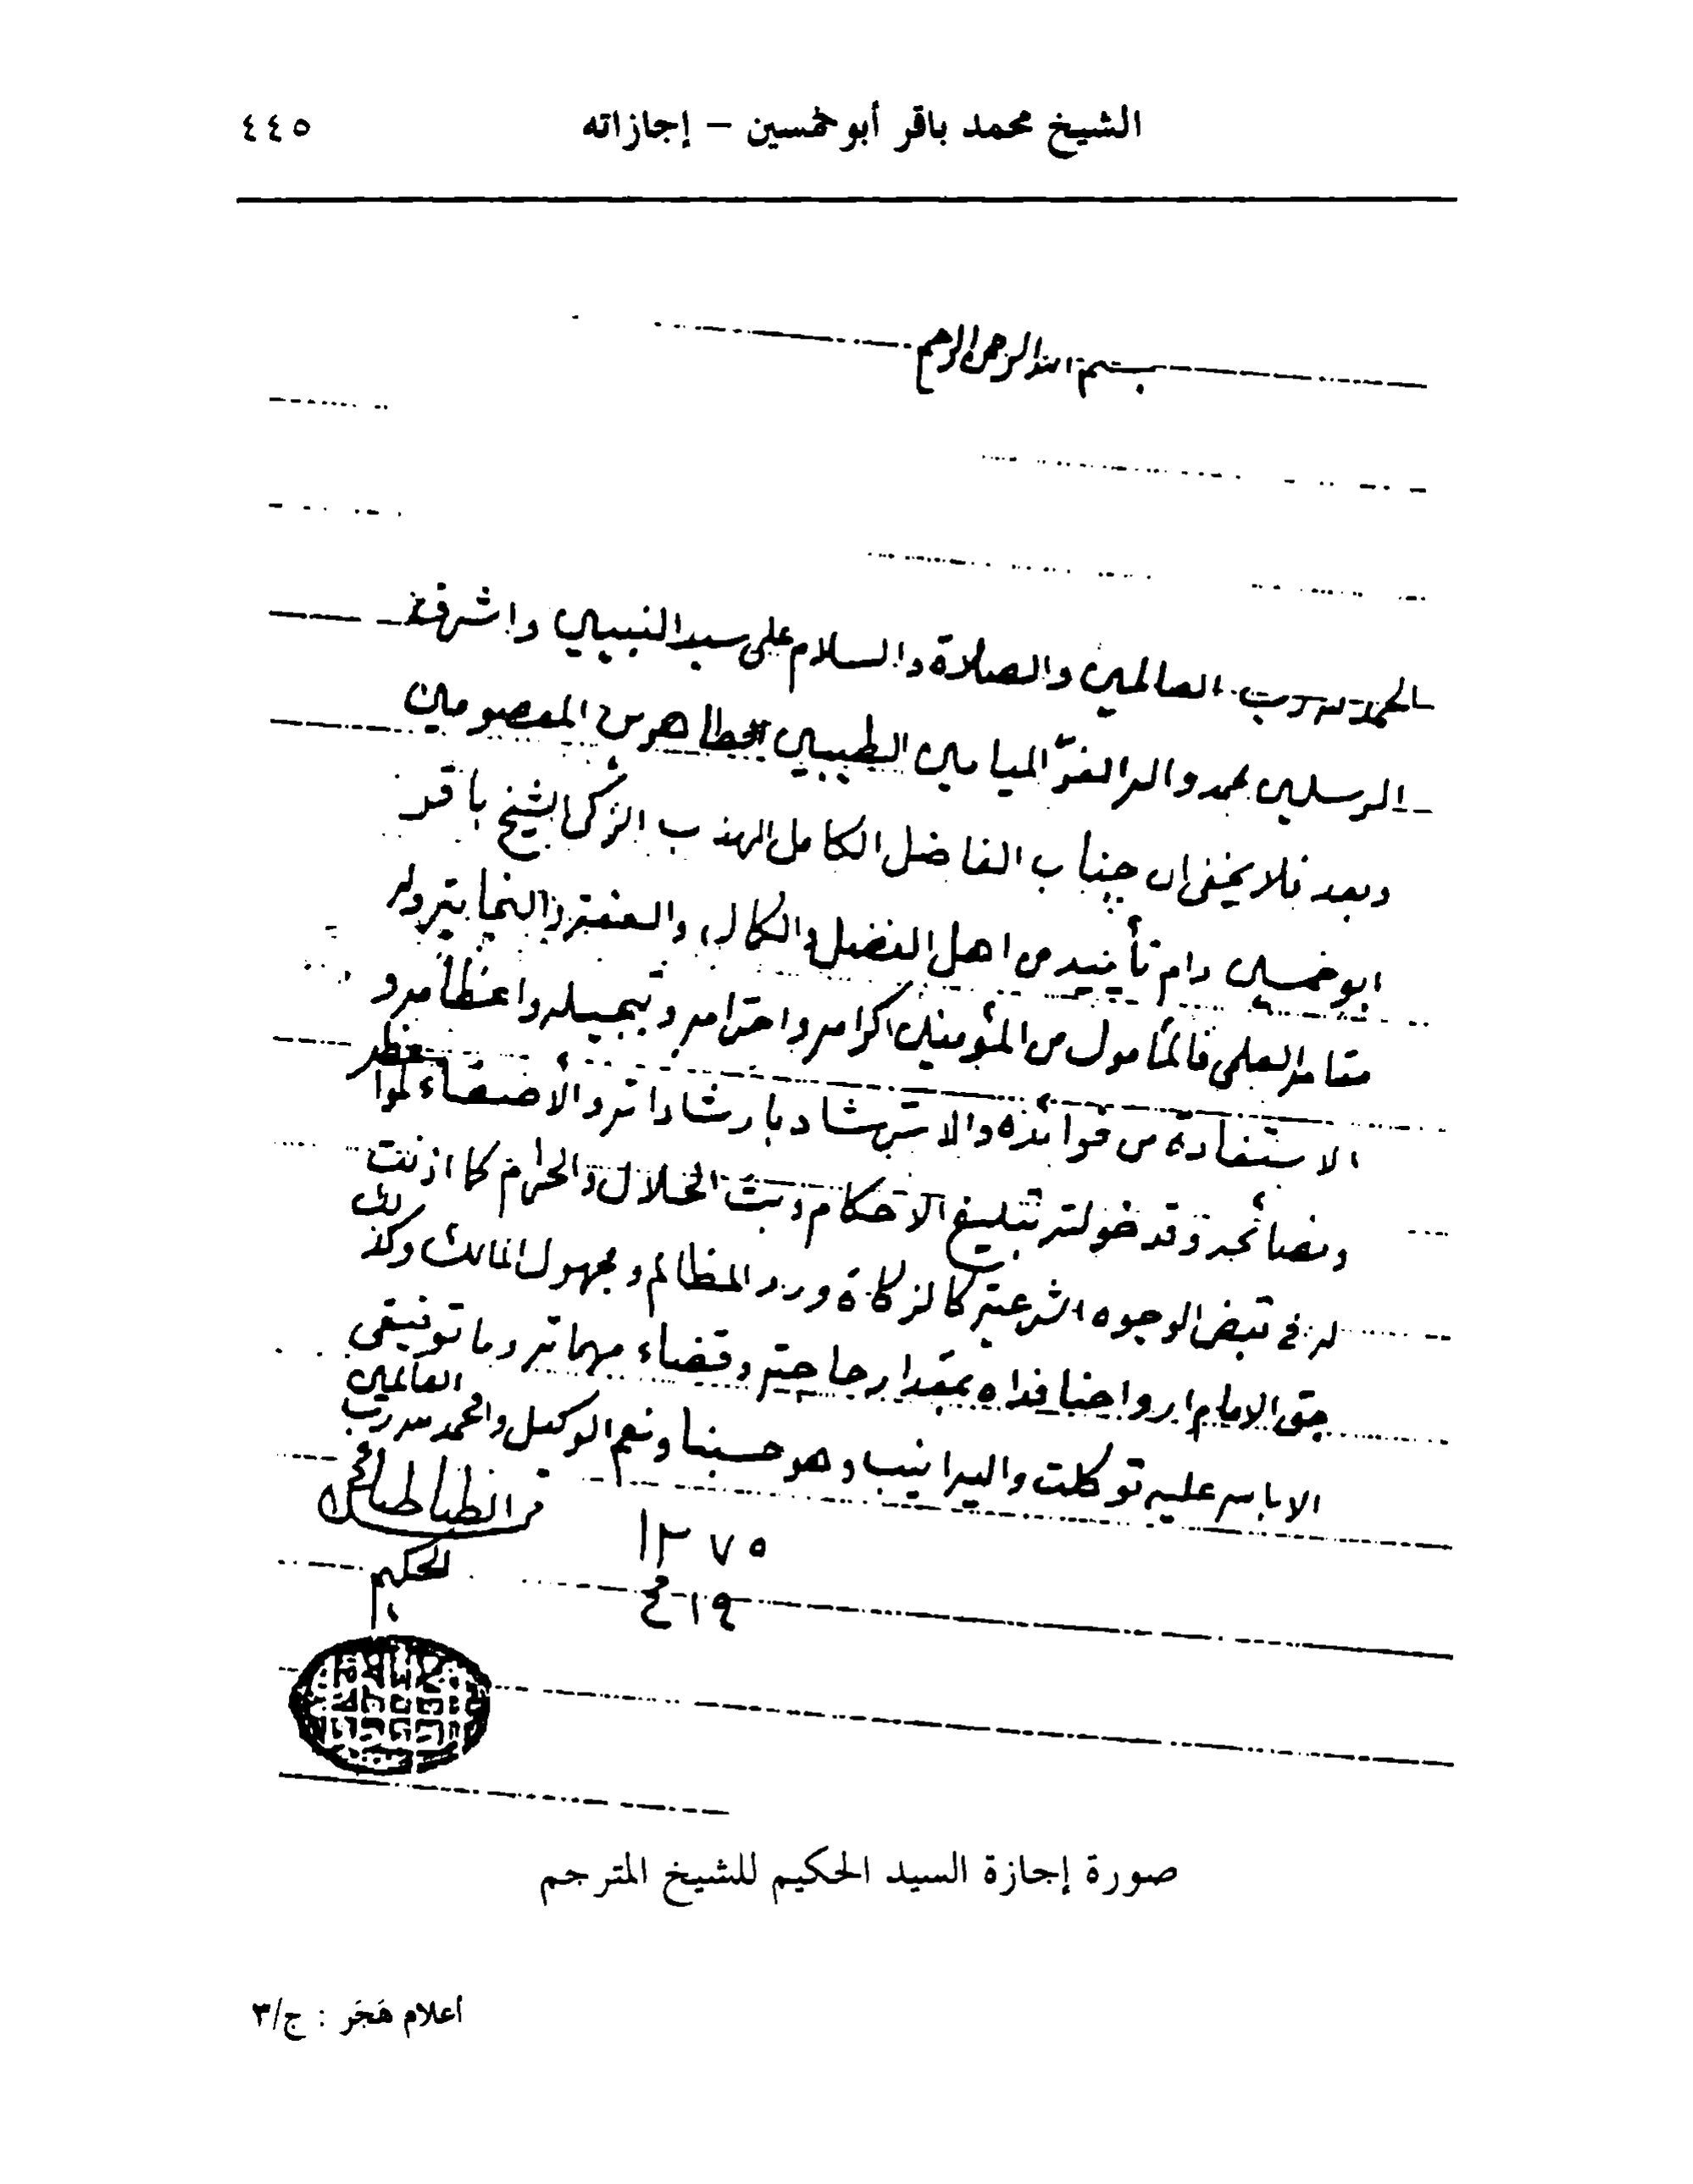 الشيخ محمد باقر أبو خمسين – إجازاته ٤٤٥
بسم الله الرحمن الرحيم
الحمد لله رب العالمين والصلاة والسلام على سيد النبيين واشرف
المرسلين محمد واله الغرّ الميامين الطيبين الطاهرين المعصومين
وبعد فلا يخفى ان جناب الفاضل الكامل المهذب الزكي الشيخ باقر
ابو خمسين دام تأييده من اهل الفضل والكمال والعفة والنجابة وله
مقامه العلمي فالمأمول من المؤمنين اكرامه واحترامه وتبجيله واعظامه و
الاستفادة من فوائده والاسترشاد بارشاداته والأصغاء لمواعظه
ونصائحه وقد خولته تبليغ الاحكام وبث الحلال والحرام كما اذنت
له في قبض الوجوه الشرعية كالزكاة ورد المظالم ومجهول المالك وكذلك
حق الامام ارواحنا فداه بمقدار حاجته وقضاء مهماته وما توفيقي
الا بالله عليه توكلت واليه انيب وهو حسبنا ونعم الوكيل والحمد لله رب العالمين
الطباطبائي
الحكيم
١٣٧٥
١٩ ع
صورة إجازة السيد الحكيم للشيخ المترجم
أعلام هَجَر : ج/٣